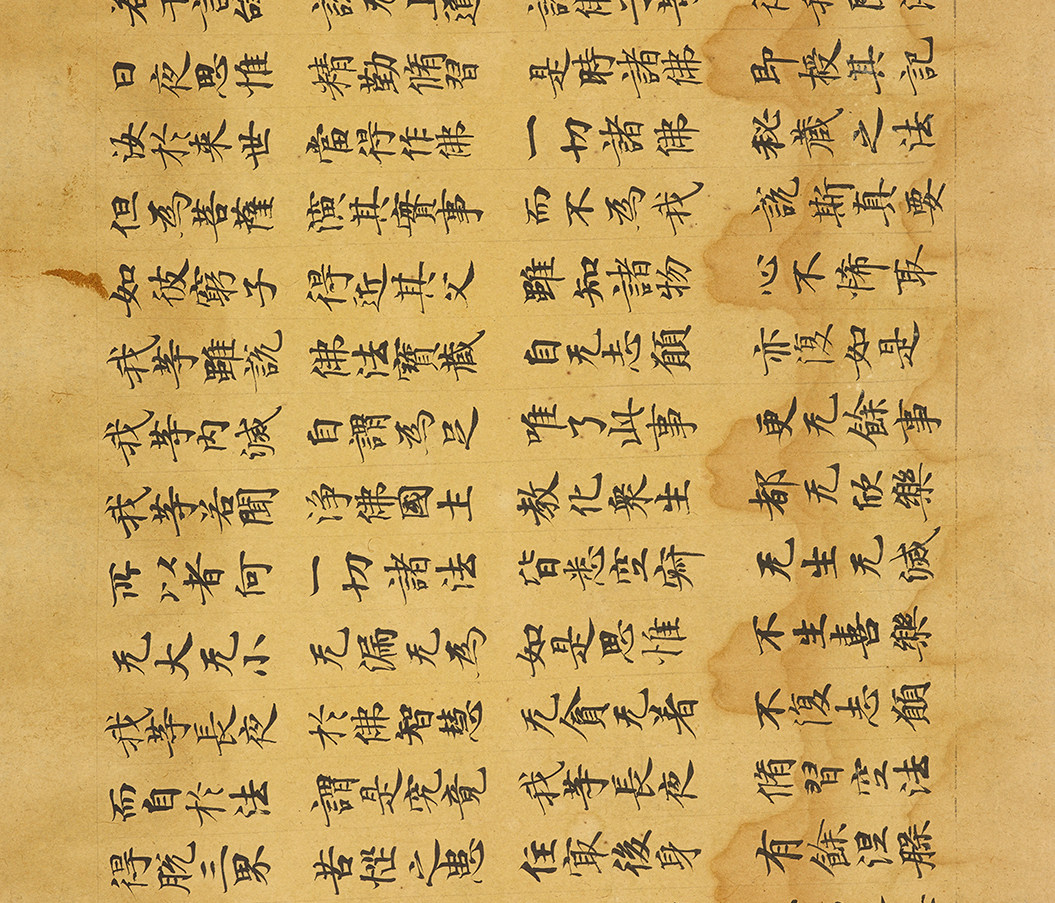 日夜思惟 精勤脩習 是時諸佛 即授其記
汝於来世 當得作佛 一切諸佛 秘藏之法
但為菩薩 演其實事 而不為我 說斯真要
如彼窮子 得近其父 雖知諸物 心不悕取
我等雖說 佛法寶藏 自无志願 亦復如是
我等內滅 自謂為足 唯了此事 更无餘事
我等若聞 淨佛國土 教化衆生 都无欣樂
所以者何 一切諸法 皆悉空寂 无生无滅
无大无小 无漏无為 如是思惟 不生喜樂
我等長夜 於佛智慧 无貪无著 不復志願
而自於法 謂是究竟 我等長夜 脩習空法
得脫三界 苦惱之患 住冣後身 有餘涅槃